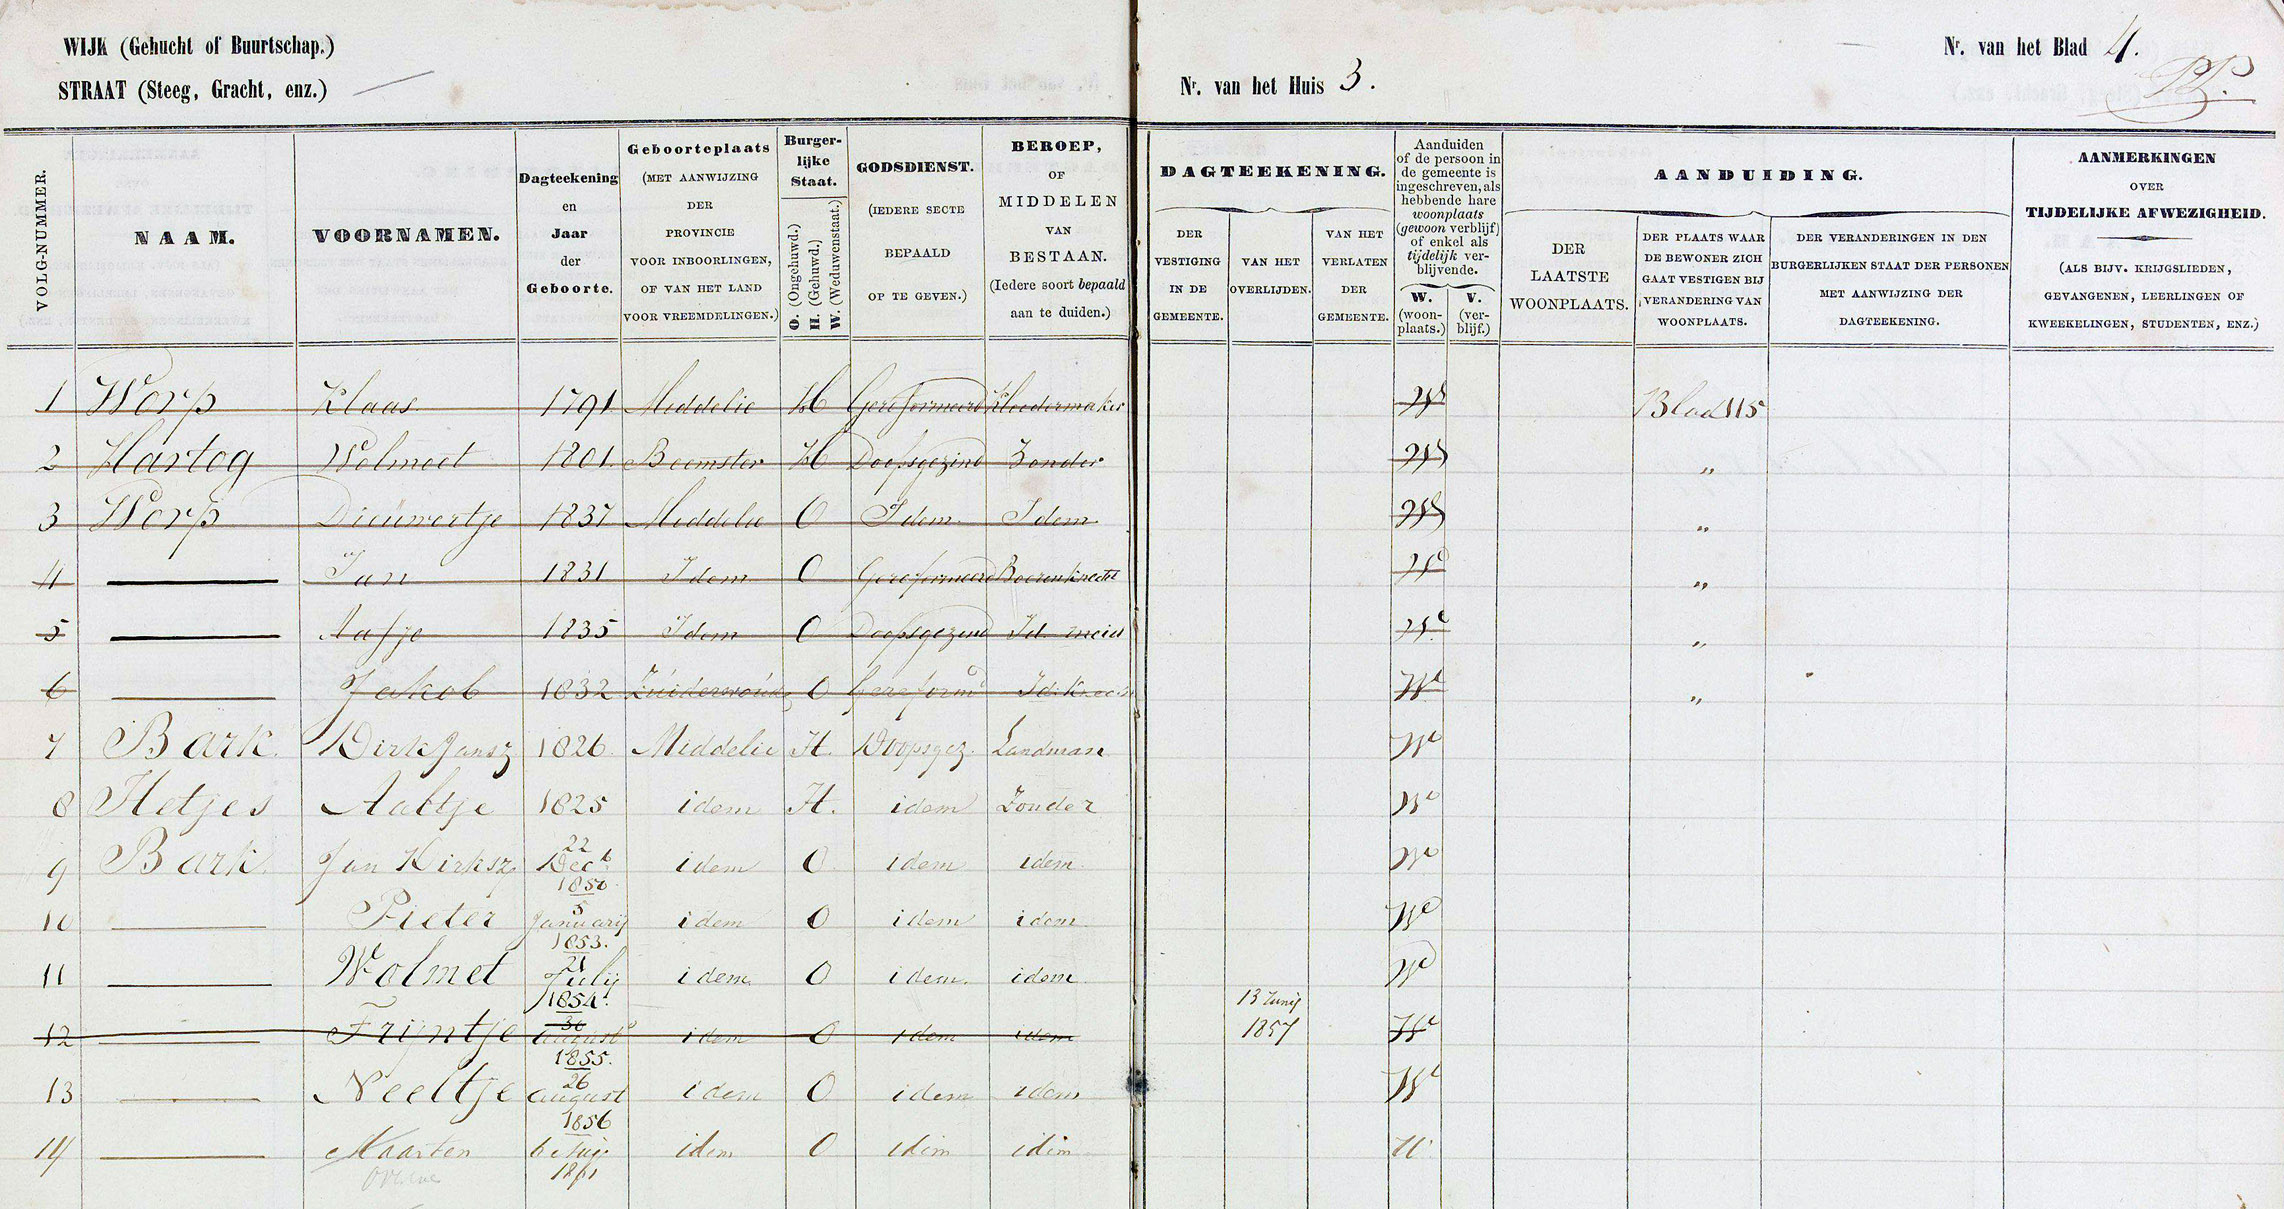 WIJK (Gehucht of Buurtschap.)
STRAAT (Steeg, Gracht, enz.)
Nr. van het Huis 3.
Nr. van het Blad 4.
VOLG-NUMMER.
NAAM.
VOORNAMEN.
Dagteekening
en
Jaar
der
Geboorte.
Geboorteplaats
(MET AANWIJZING
DER
PROVINCIE
VOOR INBOORLINGEN,
OF VAN HET LAND
VOOR VREEMDELINGEN.)
Burger-
lijke
Staat.
O. (Ongehuwd.)
H. (Gehuwd.)
W. (Weduwenstaat.)
GODSDIENST.
(IEDERE SECTE
BEPAALD
OP TE GEVEN.)
BEROEP,
OF
MIDDELEN
VAN
BESTAAN.
(Iedere soort bepaald
aan te duiden.)
DAGTEEKENING.
DER
VESTIGING
IN DE
GEMEENTE.
VAN HET
OVERLIJDEN.
VAN HET
VERLATEN
DER
GEMEENTE.
Aanduiden
of de persoon in
de gemeente is
ingeschreven, als
hebbende hare
woonplaats
(gewoon verblijf)
of enkel als
tijdelijk ver-
blijvende.
W.
(woon-
plaats.)
V.
(ver-
blijf.)
AANDUIDING.
DER
LAATSTE
WOONPLAATS.
DER PLAATS WAAR
DE BEWONER ZICH
GAAT VESTIGEN BIJ
VERANDERING VAN
WOONPLAATS.
DER VERANDERINGEN IN DEN
BURGERLIJKEN STAAT DER PERSONEN
MET AANWIJZING DER
DAGTEEKENING.
AANMERKINGEN
OVER
TIJDELIJKE AFWEZIGHEID.
(ALS BIJV. KRIJGSLIEDEN,
GEVANGENEN, LEERLINGEN OF
KWEEKELINGEN, STUDENTEN, ENZ.)
1 Worp Klaas 1791 Middelie H Gereformeerd Kleedermaker Wd Blad 115
2 Hartog Wolmoet 1801. Beemster H Doopsgezind Zonder Wd "
3 Worp Dieuwertje 1837 Middelie O Idem Idem Wd "
4 Jan 1831 Idem O Gereformeerd Boerenknecht Wd "
5 Aafje 1835 Idem O Doopsgezind Id. meid We "
6 Jakob 1832 Zuiderwoude O Gereformd Id. Knecht We "
7 Bark. Dirk Jansz 1826. Middelie H. Doopsgez. Landman We
8 Hetjes Aaltje 1825 idem H. idem Zonder We
9 Bark. Jan Dirksz 22 Decb. 1850. idem O. idem idem We
10 Pieter 5 Januarij 1853. idem O idem idem We
11 Wolmet 21 Julij 1854. idem O idem. idem We
12 Trijntje 30 August 1855. idem O idem idem 13 Junij 1857 We
13 Neeltje 26 August 1856 idem O idem idem We
14 Maarten 6 1861 idem O idem idem W.